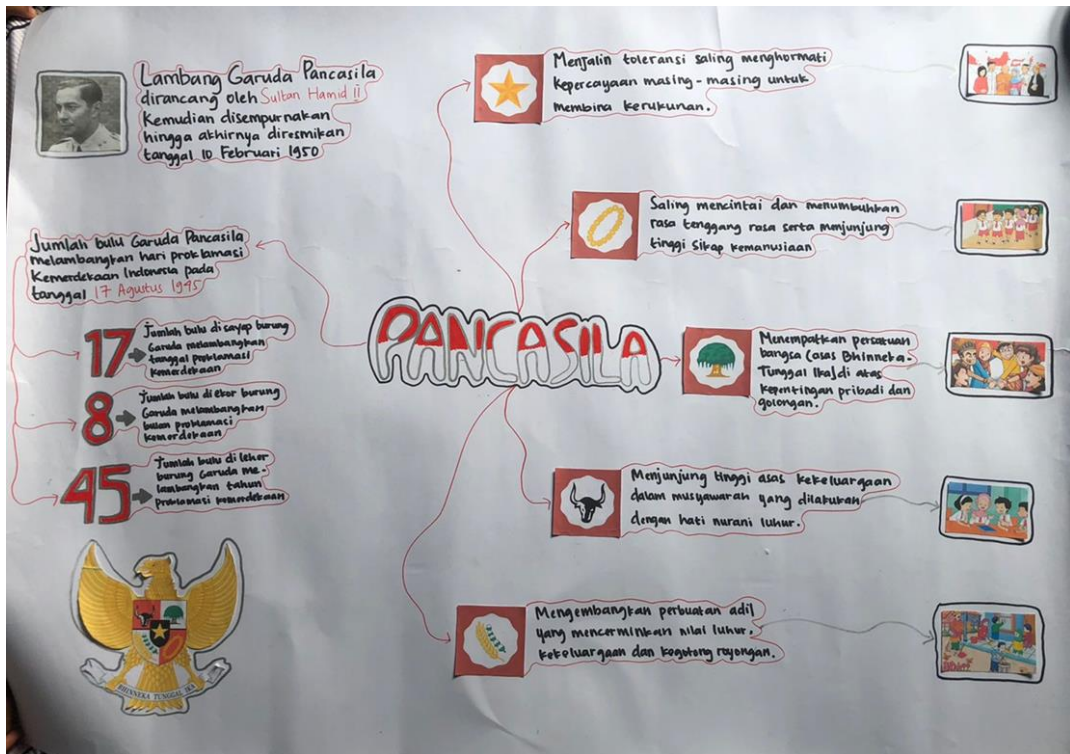 Lambang Garuda Pancasila
dirancang oleh Sultan Hamid II
Kemudian disempurnakan
hingga akhirnya diresmikan
tanggal 10 Februari 1950
Jumlah bulu Garuda Pancasila
melambangkan hari proklamasi
Kemerdekaan Indonesia pada
tanggal 17 Agustus 1945
17
Jumlah bulu di sayap burung
Garuda melambangkan
tanggal proklamasi
kemerdekaan
8
Jumlah bulu di ekor burung
Garuda melambangkan
bulan proklamasi
kemerdekaan
45
Jumlah bulu di leher
burung Garuda me-
lambangkan tahun
proklamasi kemerdekaan
BHINNEKA TUNGGAL IKA
PANCASILA
Menjalin toleransi saling menghormati
kepercayaan masing-masing untuk
membina kerukunan.
Saling mencintai dan menumbuhkan
rasa tenggang rasa serta menjunjung
tinggi sikap kemanusiaan
Menempatkan persatuan
bangsa (asas Bhinneka
Tunggal Ika) di atas
kepentingan pribadi dan
golongan.
Menjunjung tinggi asas kekeluargaan
dalam musyawarah yang dilakukan
dengan hati nurani luhur.
Mengembangkan perbuatan adil
yang mencerminkan nilai luhur.
kekeluargaan dan kegotong royongan.